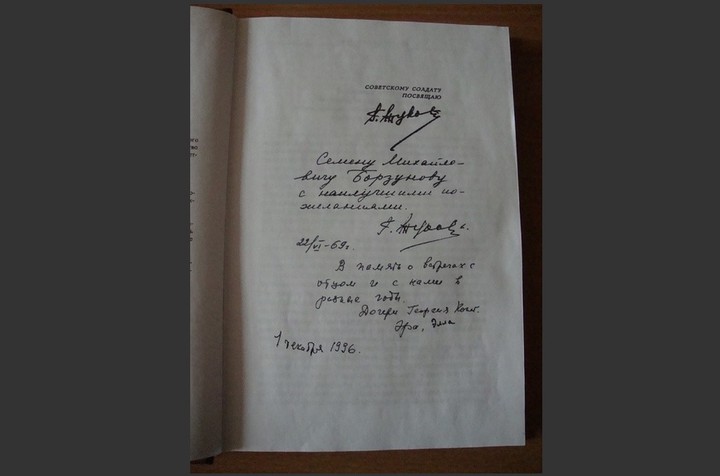 СОВЕТСКОМУ СОЛДАТУ
ПОСВЯЩАЮ
Г. Жуков
Семену Михайло-
вичу Борзунову
с наилучшими по-
желаниями.
Г. Жуков
22/VI-69г.
В память о встречах с
отцом и с нами в
разные годы.
Дочери Георгия Конст.
Эра, Элла
1 декабря 1996.